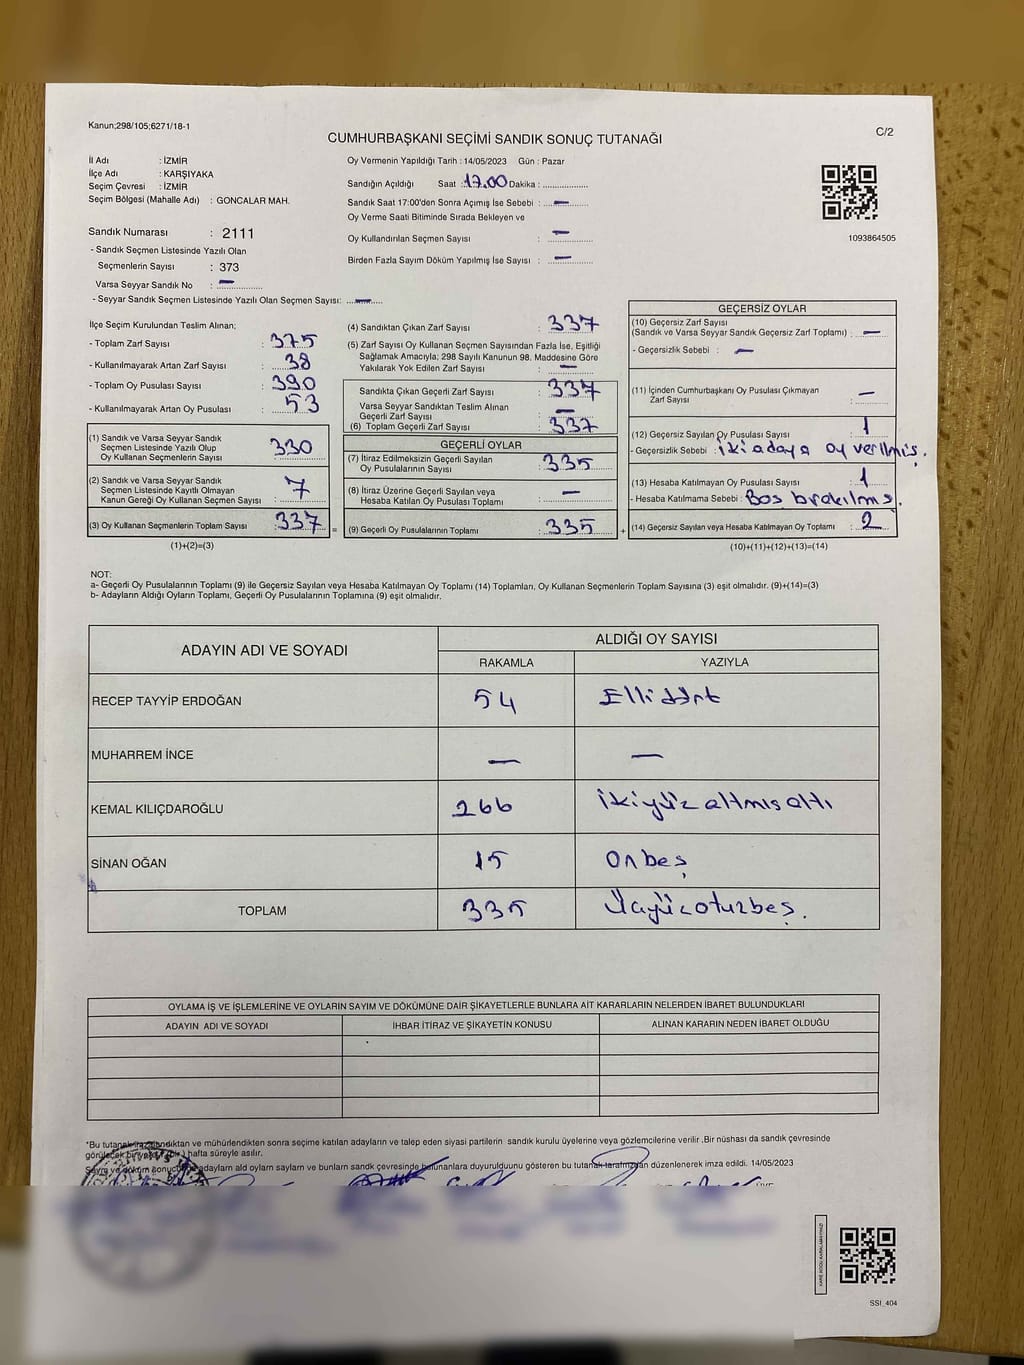 Kanun;298/105;6271/18-1
C/2
CUMHURBAŞKANI SEÇİMİ SANDIK SONUÇ TUTANAĞI
İl Adı : İZMİR
İlçe Adı : KARŞIYAKA
Seçim Çevresi : İZMİR
Seçim Bölgesi (Mahalle Adı) : GONCALAR MAH.
Sandık Numarası : 2111
- Sandık Seçmen Listesinde Yazılı Olan
Seçmenlerin Sayısı : 373
Varsa Seyyar Sandık No : —
- Seyyar Sandık Seçmen Listesinde Yazılı Olan Seçmen Sayısı: —
Oy Vermenin Yapıldığı Tarih : 14/05/2023 Gün : Pazar
Sandığın Açıldığı Saat : 17.00 Dakika : ....................
Sandık Saat 17:00'den Sonra Açımış İse Sebebi : —
Oy Verme Saati Bitiminde Sırada Bekleyen ve
Oy Kullandırılan Seçmen Sayısı : —
Birden Fazla Sayım Döküm Yapılmış İse Sayısı : —
1093864505
İlçe Seçim Kurulundan Teslim Alınan;
- Toplam Zarf Sayısı : 375
- Kullanılmayarak Artan Zarf Sayısı : 38
- Toplam Oy Pusulası Sayısı : 390
- Kullanılmayarak Artan Oy Pusulası : 53
(1) Sandık ve Varsa Seyyar Sandık
Seçmen Listesinde Yazılı Olup
Oy Kullanan Seçmenlerin Sayısı : 330
(2) Sandık ve Varsa Seyyar Sandık
Seçmen Listesinde Kayıtlı Olmayan
Kanun Gereği Oy Kullanan Seçmen Sayısı : 7
(3) Oy Kullanan Seçmenlerin Toplam Sayısı : 337
(1)+(2)=(3)
(4) Sandıktan Çıkan Zarf Sayısı : 337
(5) Zarf Sayısı Oy Kullanan Seçmen Sayısından Fazla İse, Eşitliği
Sağlamak Amacıyla; 298 Sayılı Kanunun 98. Maddesine Göre
Yakılarak Yok Edilen Zarf Sayısı : —
Sandıkta Çıkan Geçerli Zarf Sayısı : 337
Varsa Seyyar Sandıktan Teslim Alınan
Geçerli Zarf Sayısı : —
(6) Toplam Geçerli Zarf Sayısı : 337
=
GEÇERLİ OYLAR
(7) İtiraz Edilmeksizin Geçerli Sayılan
Oy Pusulalarının Sayısı : 335
(8) İtiraz Üzerine Geçerli Sayılan veya
Hesaba Katılan Oy Pusulaları Toplamı : —
(9) Geçerli Oy Pusulalarının Toplamı : 335
+
GEÇERSİZ OYLAR
(10) Geçersiz Zarf Sayısı
(Sandık ve Varsa Seyyar Sandık Geçersiz Zarf Toplamı) : —
- Geçersizlik Sebebi : —
(11) İçinden Cumhurbaşkanı Oy Pusulası Çıkmayan
Zarf Sayısı : —
(12) Geçersiz Sayılan Oy Pusulası Sayısı : 1
- Geçersizlik Sebebi : iki adaya oy verilmiş.
(13) Hesaba Katılmayan Oy Pusulası Sayısı : 1
- Hesaba Katılmama Sebebi : Bos bırakılmıs.
(14) Geçersiz Sayılan veya Hesaba Katılmayan Oy Toplamı : 2
(10)+(11)+(12)+(13)=(14)
NOT:
a- Geçerli Oy Pusulalarının Toplamı (9) ile Geçersiz Sayılan veya Hesaba Katılmayan Oy Toplamı (14) Toplamları, Oy Kullanan Seçmenlerin Toplam Sayısına (3) eşit olmalıdır. (9)+(14)=(3)
b- Adayların Aldığı Oyların Toplamı, Geçerli Oy Pusulalarının Toplamına (9) eşit olmalıdır.
ADAYIN ADI VE SOYADI
ALDIĞI OY SAYISI
RAKAMLA YAZIYLA
RECEP TAYYİP ERDOĞAN 54 Ellidört
MUHARREM İNCE — —
KEMAL KILIÇDAROĞLU 266 ikiyüz altmıs altı
SİNAN OĞAN 15 Onbeş
TOPLAM 335 Üçyüzotuzbeş.
OYLAMA İŞ VE İŞLEMLERİNE VE OYLARIN SAYIM VE DÖKÜMÜNE DAİR ŞİKAYETLERLE BUNLARA AİT KARARLARIN NELERDEN İBARET BULUNDUKLARI
ADAYIN ADI VE SOYADI İHBAR İTİRAZ VE ŞİKAYETİN KONUSU ALINAN KARARIN NEDEN İBARET OLDUĞU
*Bu tutanak imzalandıktan ve mühürlendikten sonra seçime katılan adayların ve talep eden siyasi partilerin sandık kurulu üyelerine veya gözlemcilerine verilir .Bir nüshası da sandık çevresinde
hafta süreyle asılır.
adayların ald oyların sayların ve bunların sandk çevresinde bulunanlara duyurulduunu gösteren bu tutanak tarafımızdan düzenlenerek imza edildi. 14/05/2023
SSI_404